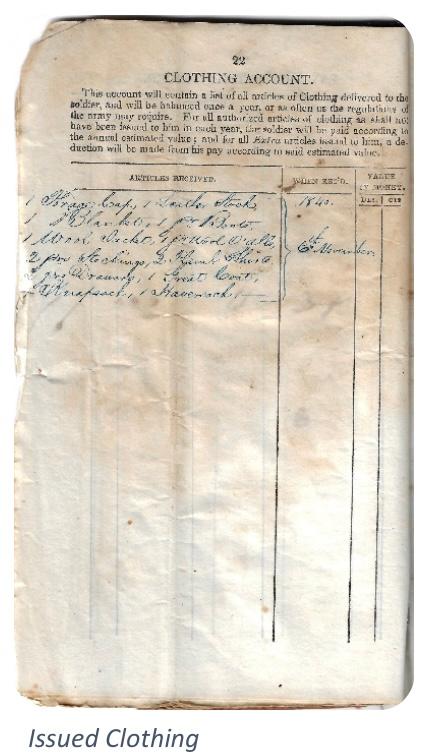 22
CLOTHING ACCOUNT.
This account will contain a list of all articles of Clothing delivered to the
soldier, and will be balanced once a year, or as often as the regulations of
the army may require. For all authorized articles of clothing as shall not
have been issued to him in each year, the soldier will be paid according to
the annual estimated value; and for all Extra articles issued to him, a de-
duction will be made from his pay according to said estimated value.
ARTICLES RECEIVED. WHEN REC'D. VALUE IN MONEY.
DLS. CTS
1 Forage Cap, 1 Leather Stock, 1840.
1 Blanket, 1 pr Boots
1 Wool Jacket, 1 pr Wool O'alls, 6th November
2 prs Stockings, 2 Flannel Shirts
2 prs Drawers, 1 Great Coat,
1 Knapsack, 1 Haversack
Issued Clothing